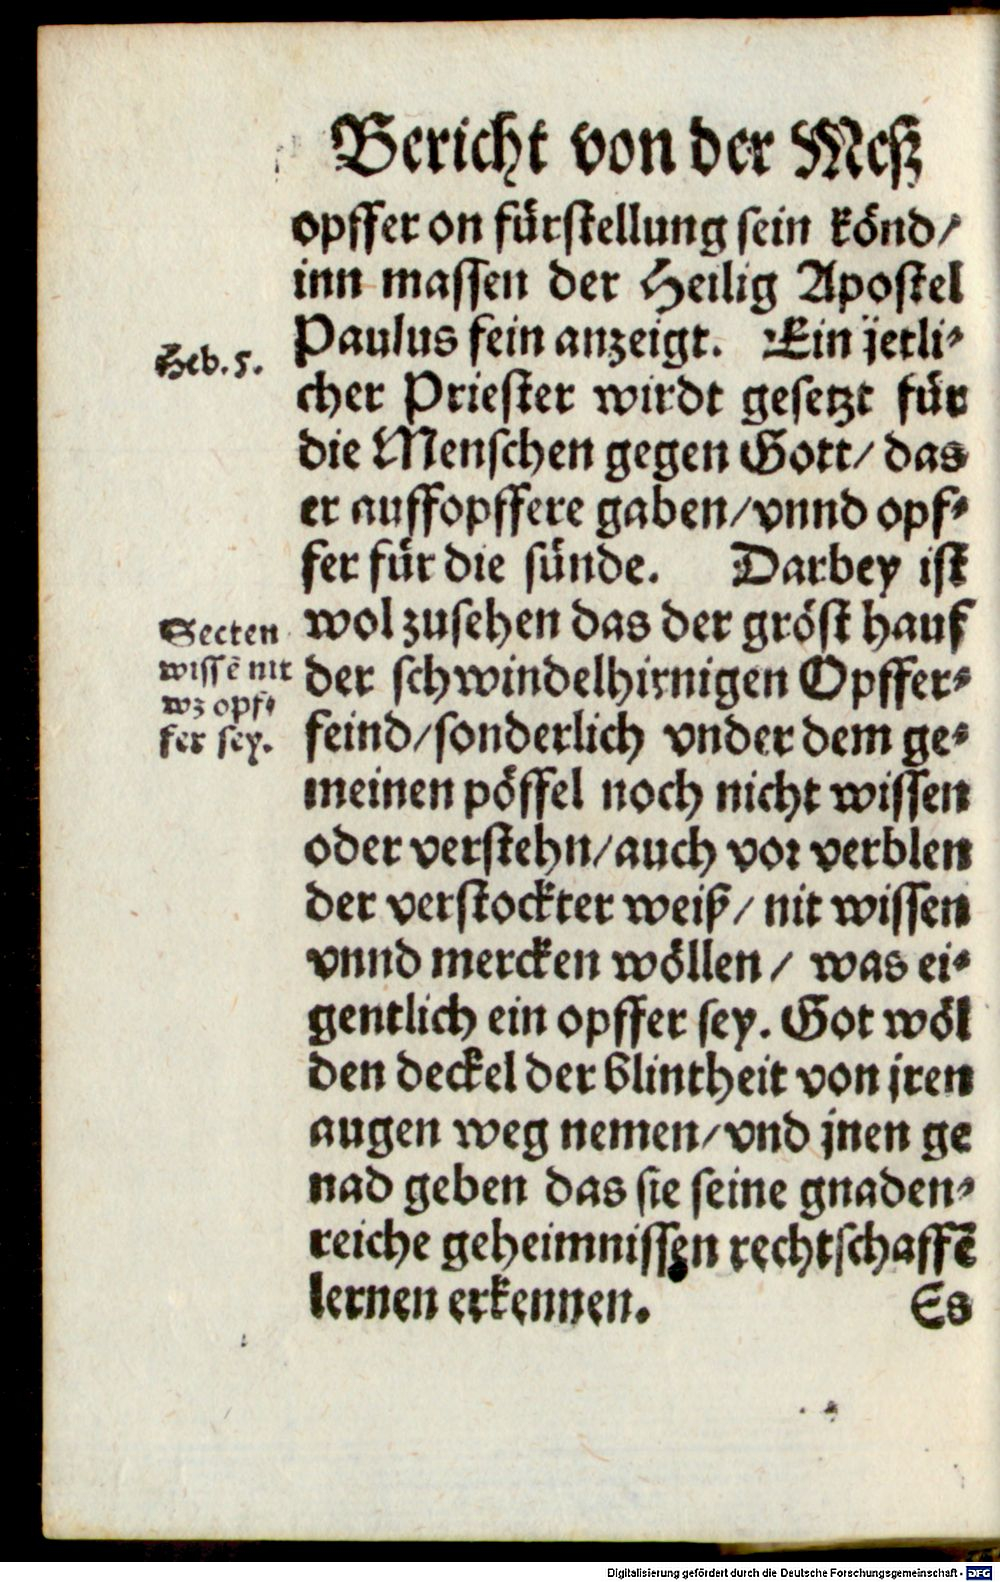 Bericht von der Meß
opffer on fürstellung sein könd/
inn massen der Heilig Apostel
Paulus fein anzeigt. Ein jetli-
Heb. 5.
cher Priester wirdt gesetzt für
die Menschen gegen Gott/ das
er auffopffere gaben/vnnd opf-
fer für die sünde. Darbey ist
wol zusehen das der gröst hauf
Secten
wissē nit
wz opf-
fer sey.
der schwindelhirnigen Opffer-
feind/sonderlich vnder dem ge-
meinen pöffel noch nicht wissen
oder verstehn/auch vor verblen
der verstockter weiß/ nit wissen
vnnd mercken wöllen/ was ei-
gentlich ein opffer sey. Got wöl
den deckel der blintheit von jren
augen weg nemen/vnd jnen ge
nad geben das sie seine gnaden-
reiche geheimnissen rechtschaffē
lernen erkennen.
Es
Digitalisierung gefördert durch die Deutsche Forschungsgemeinschaft - DFG